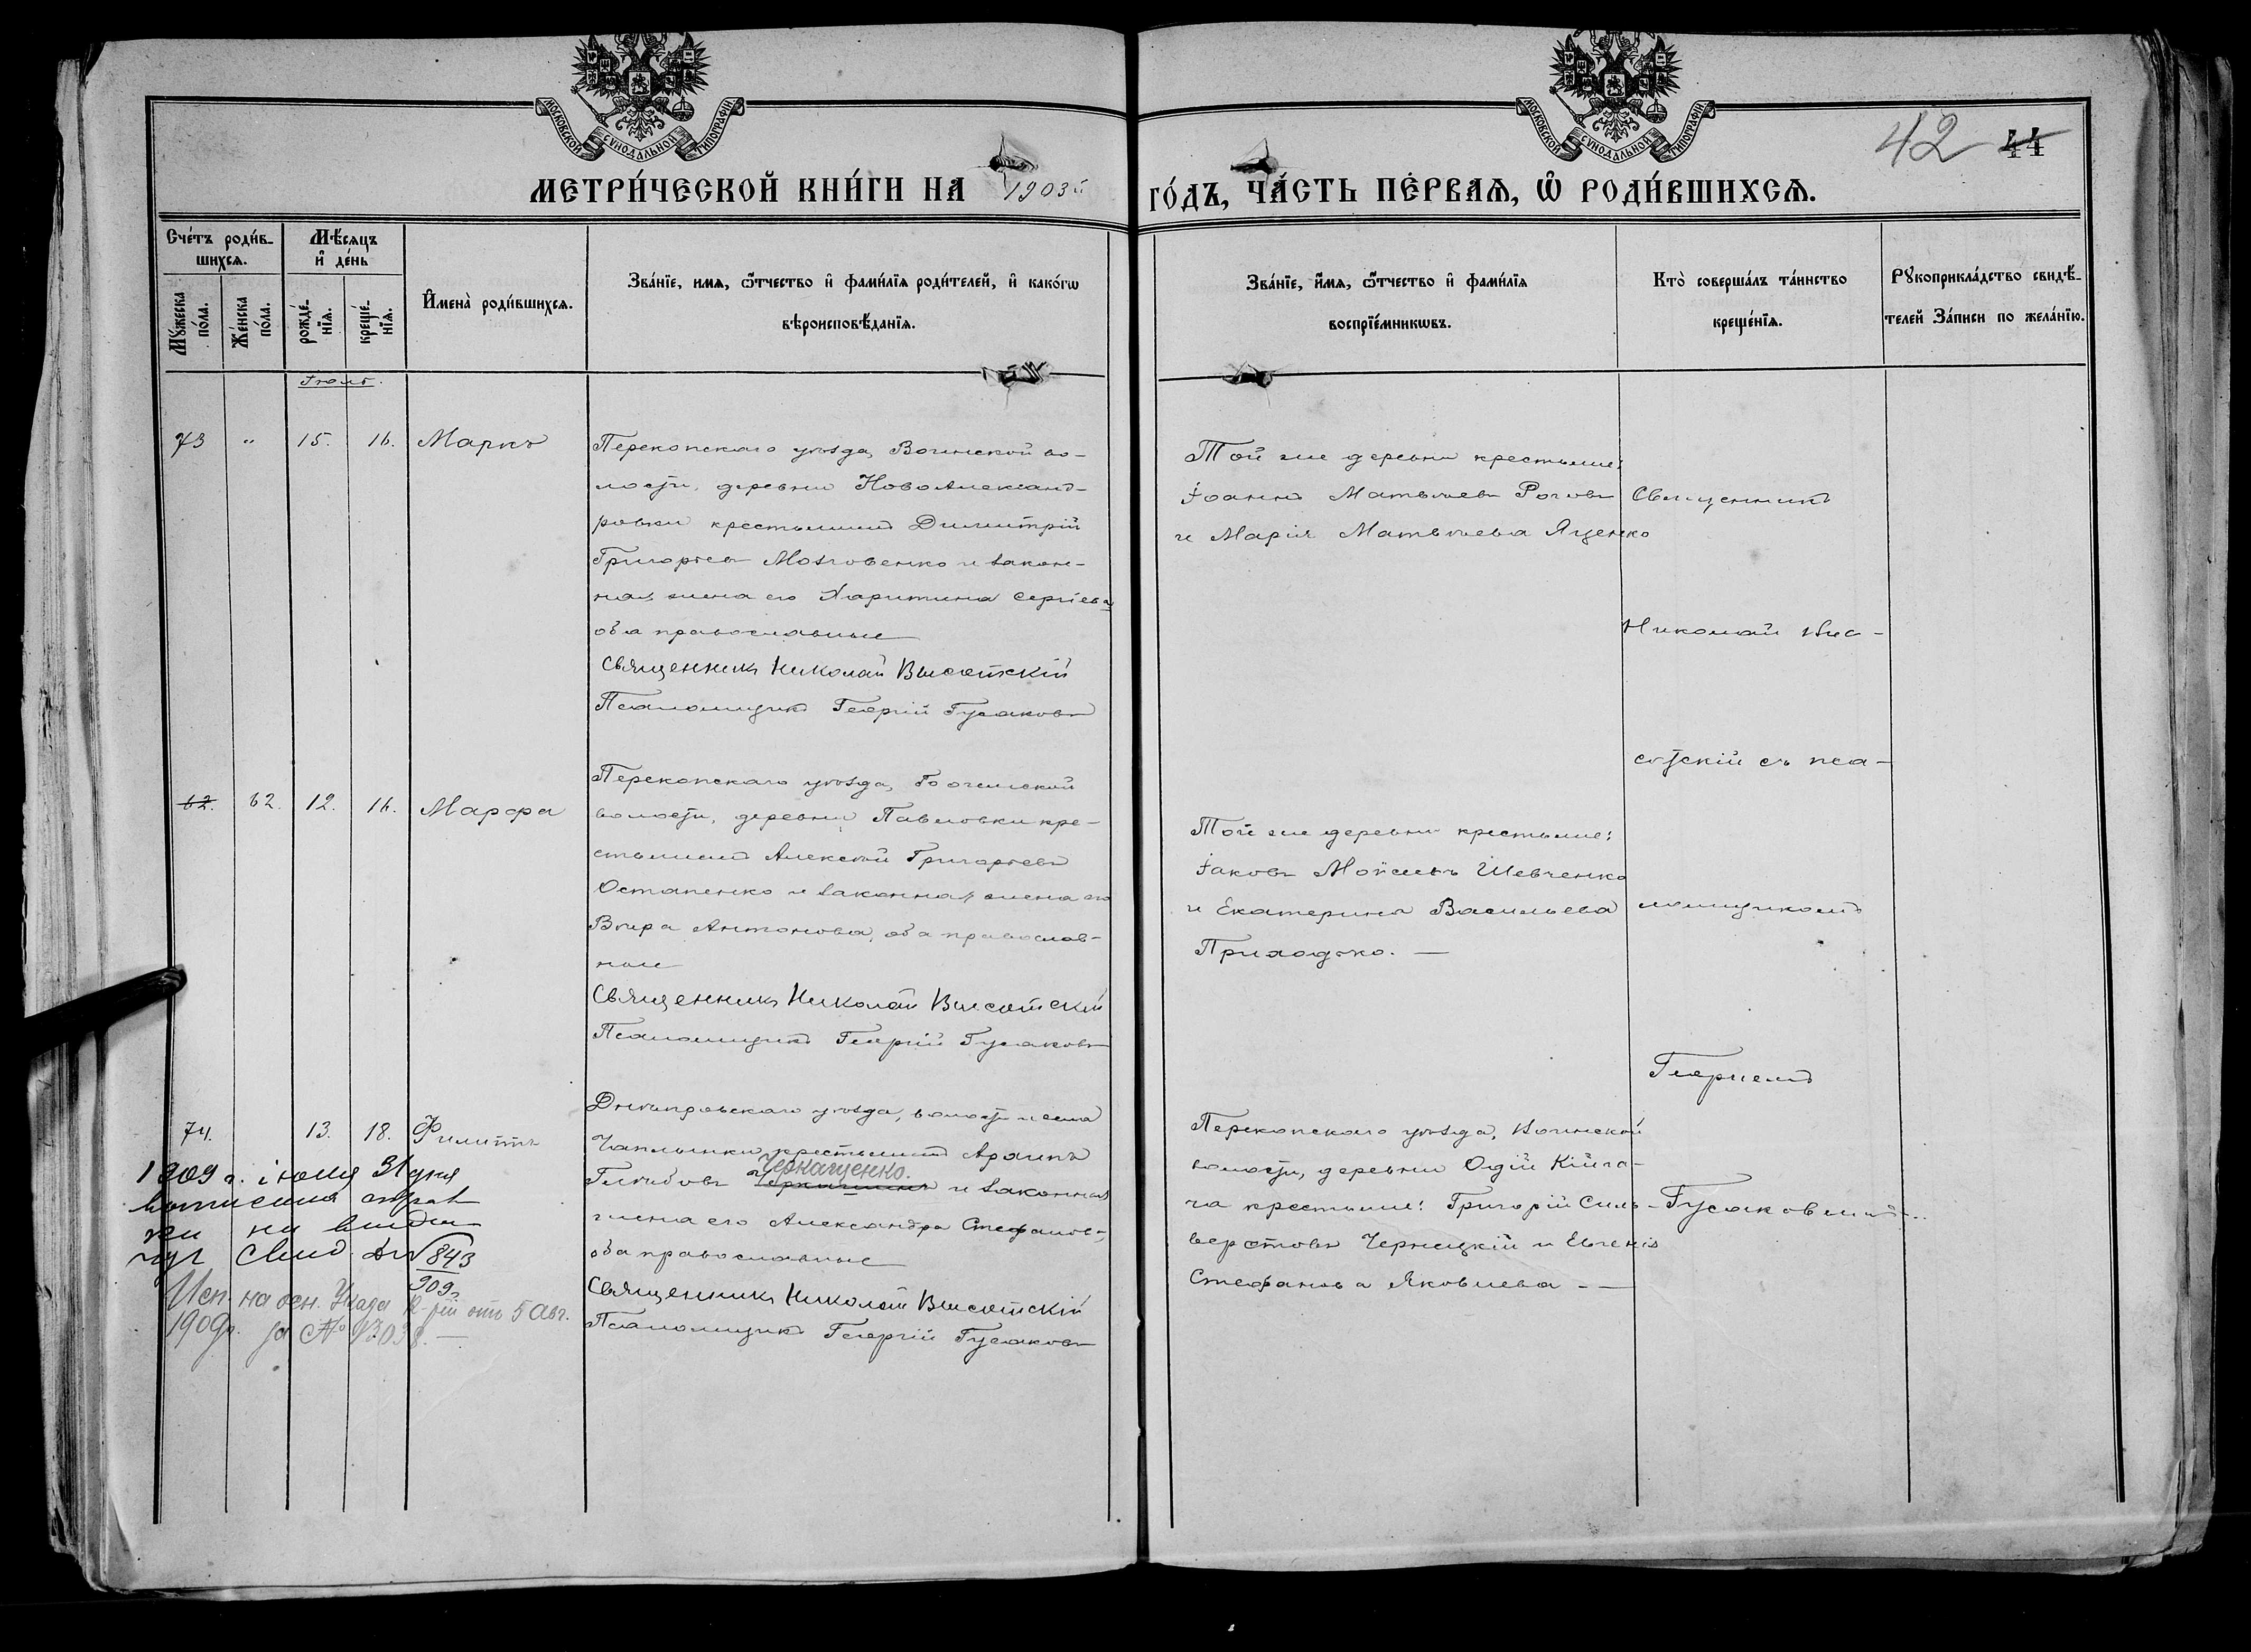 МОСКОВСКОЙ СѴНОДАЛЬНОЙ ТИПОГРАФІИ
МОСКОВСКОЙ СѴНОДАЛЬНОЙ ТИПОГРАФІИ
42 44
МЕТРИ́ЧЕСКОЙ КНИ́ГИ НА 1903й ГО́ДЪ, ЧА́СТЬ ПЕ́РВАѦ, Ѡ҆ РОДИ́ВШИХСѦ.
Сче́тъ роди́в-
шихсѧ.
Мꙋ́жеска
по́ла.
Же́нска
по́ла.
Мѣ́сѧцъ
и҆ де́нь
рожде́-
нїѧ.
креще́-
нїѧ.
И҆мена̀ роди́вшихсѧ.
Зва́нїе, имѧ, ѿ́тчество и҆ фами́лїѧ роди́телей, и҆ како́гѡ
вѣроисповѣ́данїѧ.
Зва́нїе, и҆́мѧ, ѿ́тчество и҆ фами́лїѧ
воспрїе́мникѡвъ.
Кто̀ соверша́лъ та́инство
креще́нїѧ.
Рꙋкоприкла́дство свидѣ́-
телей за́писи по жела́нїю.
Іюль.
73 " 15. 16. Маркъ
Перекопскаго уѣзда, Воинской во-
лости, деревни НовоАлександ-
ровки крестьянинъ Димитрій
Григорьевъ Мозговенко и закон-
ная жена его Харитина Сергіева
оба православные
Священникъ Николай Высотскій
Псаломщикъ Георгій Гусаковъ
Той же деревни крестьяне:
Іоаннъ Матвѣевъ Роговъ
и Марія Матвѣева Яценко
62. 62. 12. 16. Марфа
Перекопскаго уѣзда,
волости, деревни Павловки кре-
стьянинъ Алексѣй Григорьевъ
Остапенко и законная жена его
Вѣра Антонова, оба православ-
ные
Священникъ Николай Высотскій
Псаломщикъ Георгій Гусаковъ
Той же деревни крестьяне:
Іаковъ Моѵсеевъ Шевченко
и Екатерина Васильева
Приходько. —
74. 13. 18. Филиппъ
Днѣпровскаго уѣзда, волости и села
Чаплынки крестьянинъ Архипъ
Черкащенко.
Глѣбовъ и законная
жена его Александра Стефанов-,
оба православные
Священникъ Николай Высотскій
Псаломщикъ Георгій Гусаковъ
Перекопскаго уѣзда, Воинской
волости, деревни Одій Кійга-
ча крестьяне: Григорій Силь-
верстовъ Чернецкій и Евгенія
Стефанова Яковлева —
1909 г. іюля 31 дня
843
909
Исп. на осн. Указа К-ріи отъ 5 Авг.
1909г. за № 13038. —
Священникъ
Николай Выс-
отскій съ пса-
ломщикомъ
Георгіемъ
Гусаковымъ.